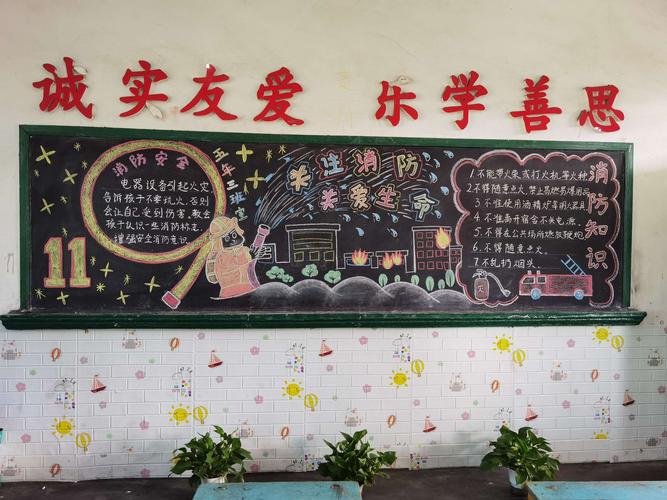 诚实友爱 乐学善思
消防安全
电器设备引起火灾
告诉孩子不要玩火，否则
会让自己受到伤害，教会
孩子认识一些消防标志，
增强安全消防意识
11
五年三班宣
关注消防
关爱生命
1.不能带火柴或打火机等火种
2.不得随意点火，禁止易燃易爆用品
3.不准使用酒精炉等明火器具
4.不准离开宿舍不关电源
5.不得在公共场所燃放鞭炮
6.不得随意点火.
7.不乱扔烟头.
消防知识